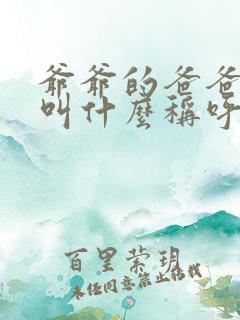 爺爺的爸爸
叫什麼稱呼
百里蒙玥
未经同意禁止转载